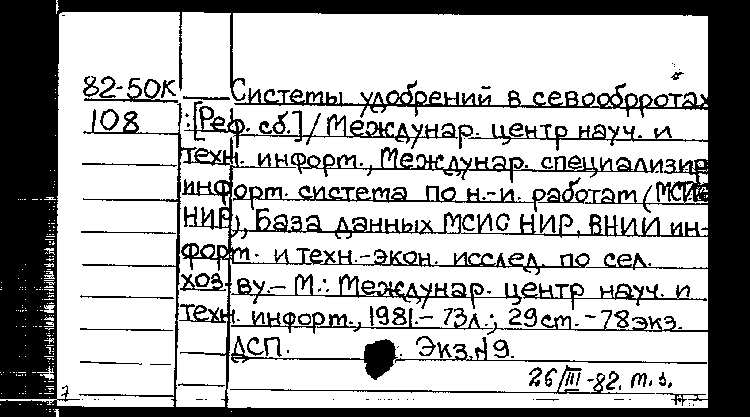 82-50К Системы удобрений в севообрротах
108 : [Реф. сб.] / Междунар. центр науч. и
техн. информ., Междунар. специализир
информ. система по н.-и. работам (МСИС
НИР), База данных МСИС НИР, ВНИИ ин-
форм. и техн.-экон. исслед. по сел.
хоз-ву.- М.: Междунар. центр науч. и
техн. информ., 1981.- 73л.; 29см.- 78экз.
ДСП. Экз.№9.
26/III-82.